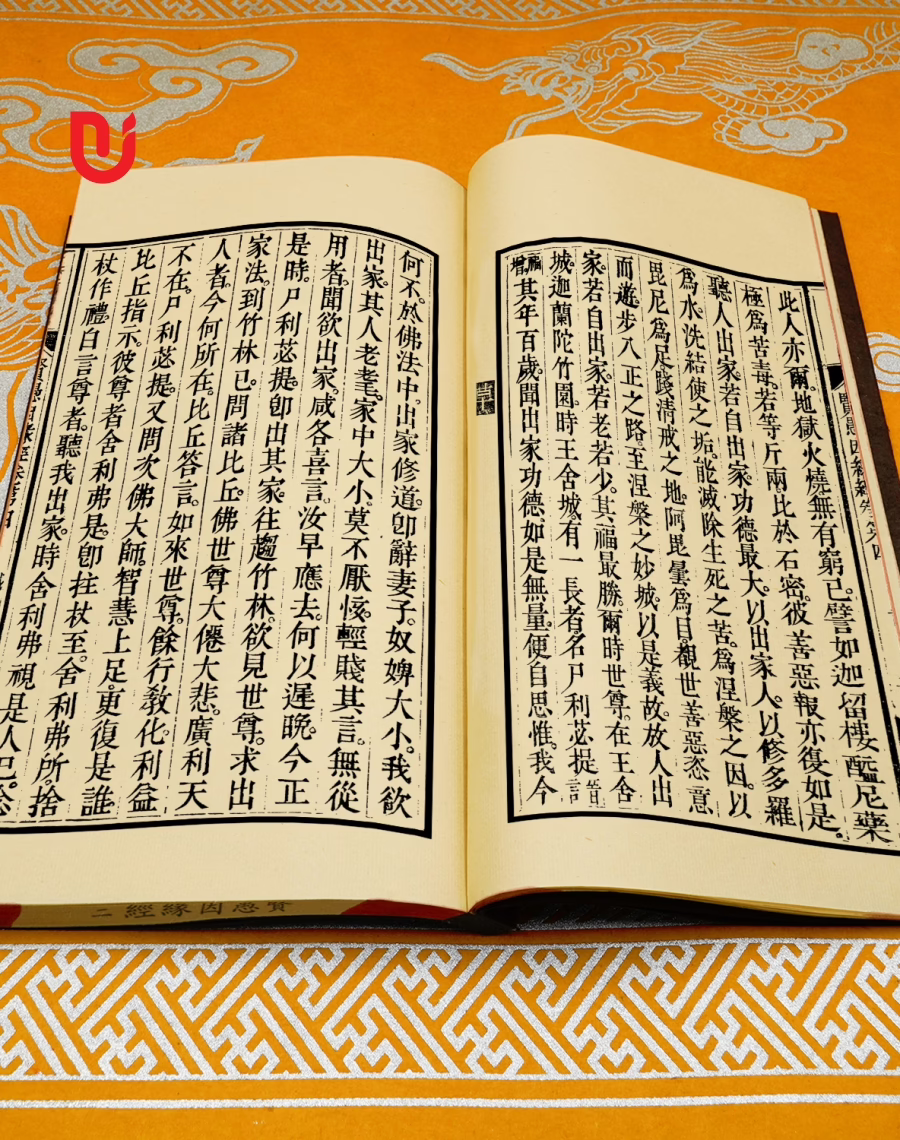 此人亦爾。地獄火燒無有窮已。譬如迦留樓醯尼藥
極為苦毒。若等斤兩比於石密。彼善惡報亦復如是。
聽人出家。若自出家。功德最大。以出家人。以修多羅
為水。洗結使之垢。能滅除生死之苦。為涅槃之因。以
毘尼為足。踐清戒之地。阿毘曇為目。觀世善惡。恣意
而遊步八正之路。至涅槃之妙城。以是義故。放人出
家。若自出家。若老若少。其福最勝。爾時世尊。在王舍
城迦蘭陀竹園。時王舍城有一長者。名尸利苾提
福增
其年百歲。聞出家功德。如是無量。便自思惟。我今
何不於佛法中。出家修道。卽辭妻子。奴婢大小。我欲
出家。其人老耄。家中大小。莫不厭。輕賤其言。無從
用者。聞欲出家。咸各喜言。汝早應去。何以遲晚。今正
是時。尸利苾提。卽出其家。往趨竹林。欲見世尊。求出
家法。到竹林已。問諸比丘。佛世尊大僊大悲。廣利天
人者。今何所在。比丘答言。如來世尊。餘行教化利益
不在。尸利苾提。又問次佛大師。智慧上足。更復是誰
比丘指示。彼尊者舍利弗是。卽柱杖至。舍利弗所。捨
杖作禮。白言尊者。聽我出家。時舍利弗視是人已。念
賢愚因緣經 二